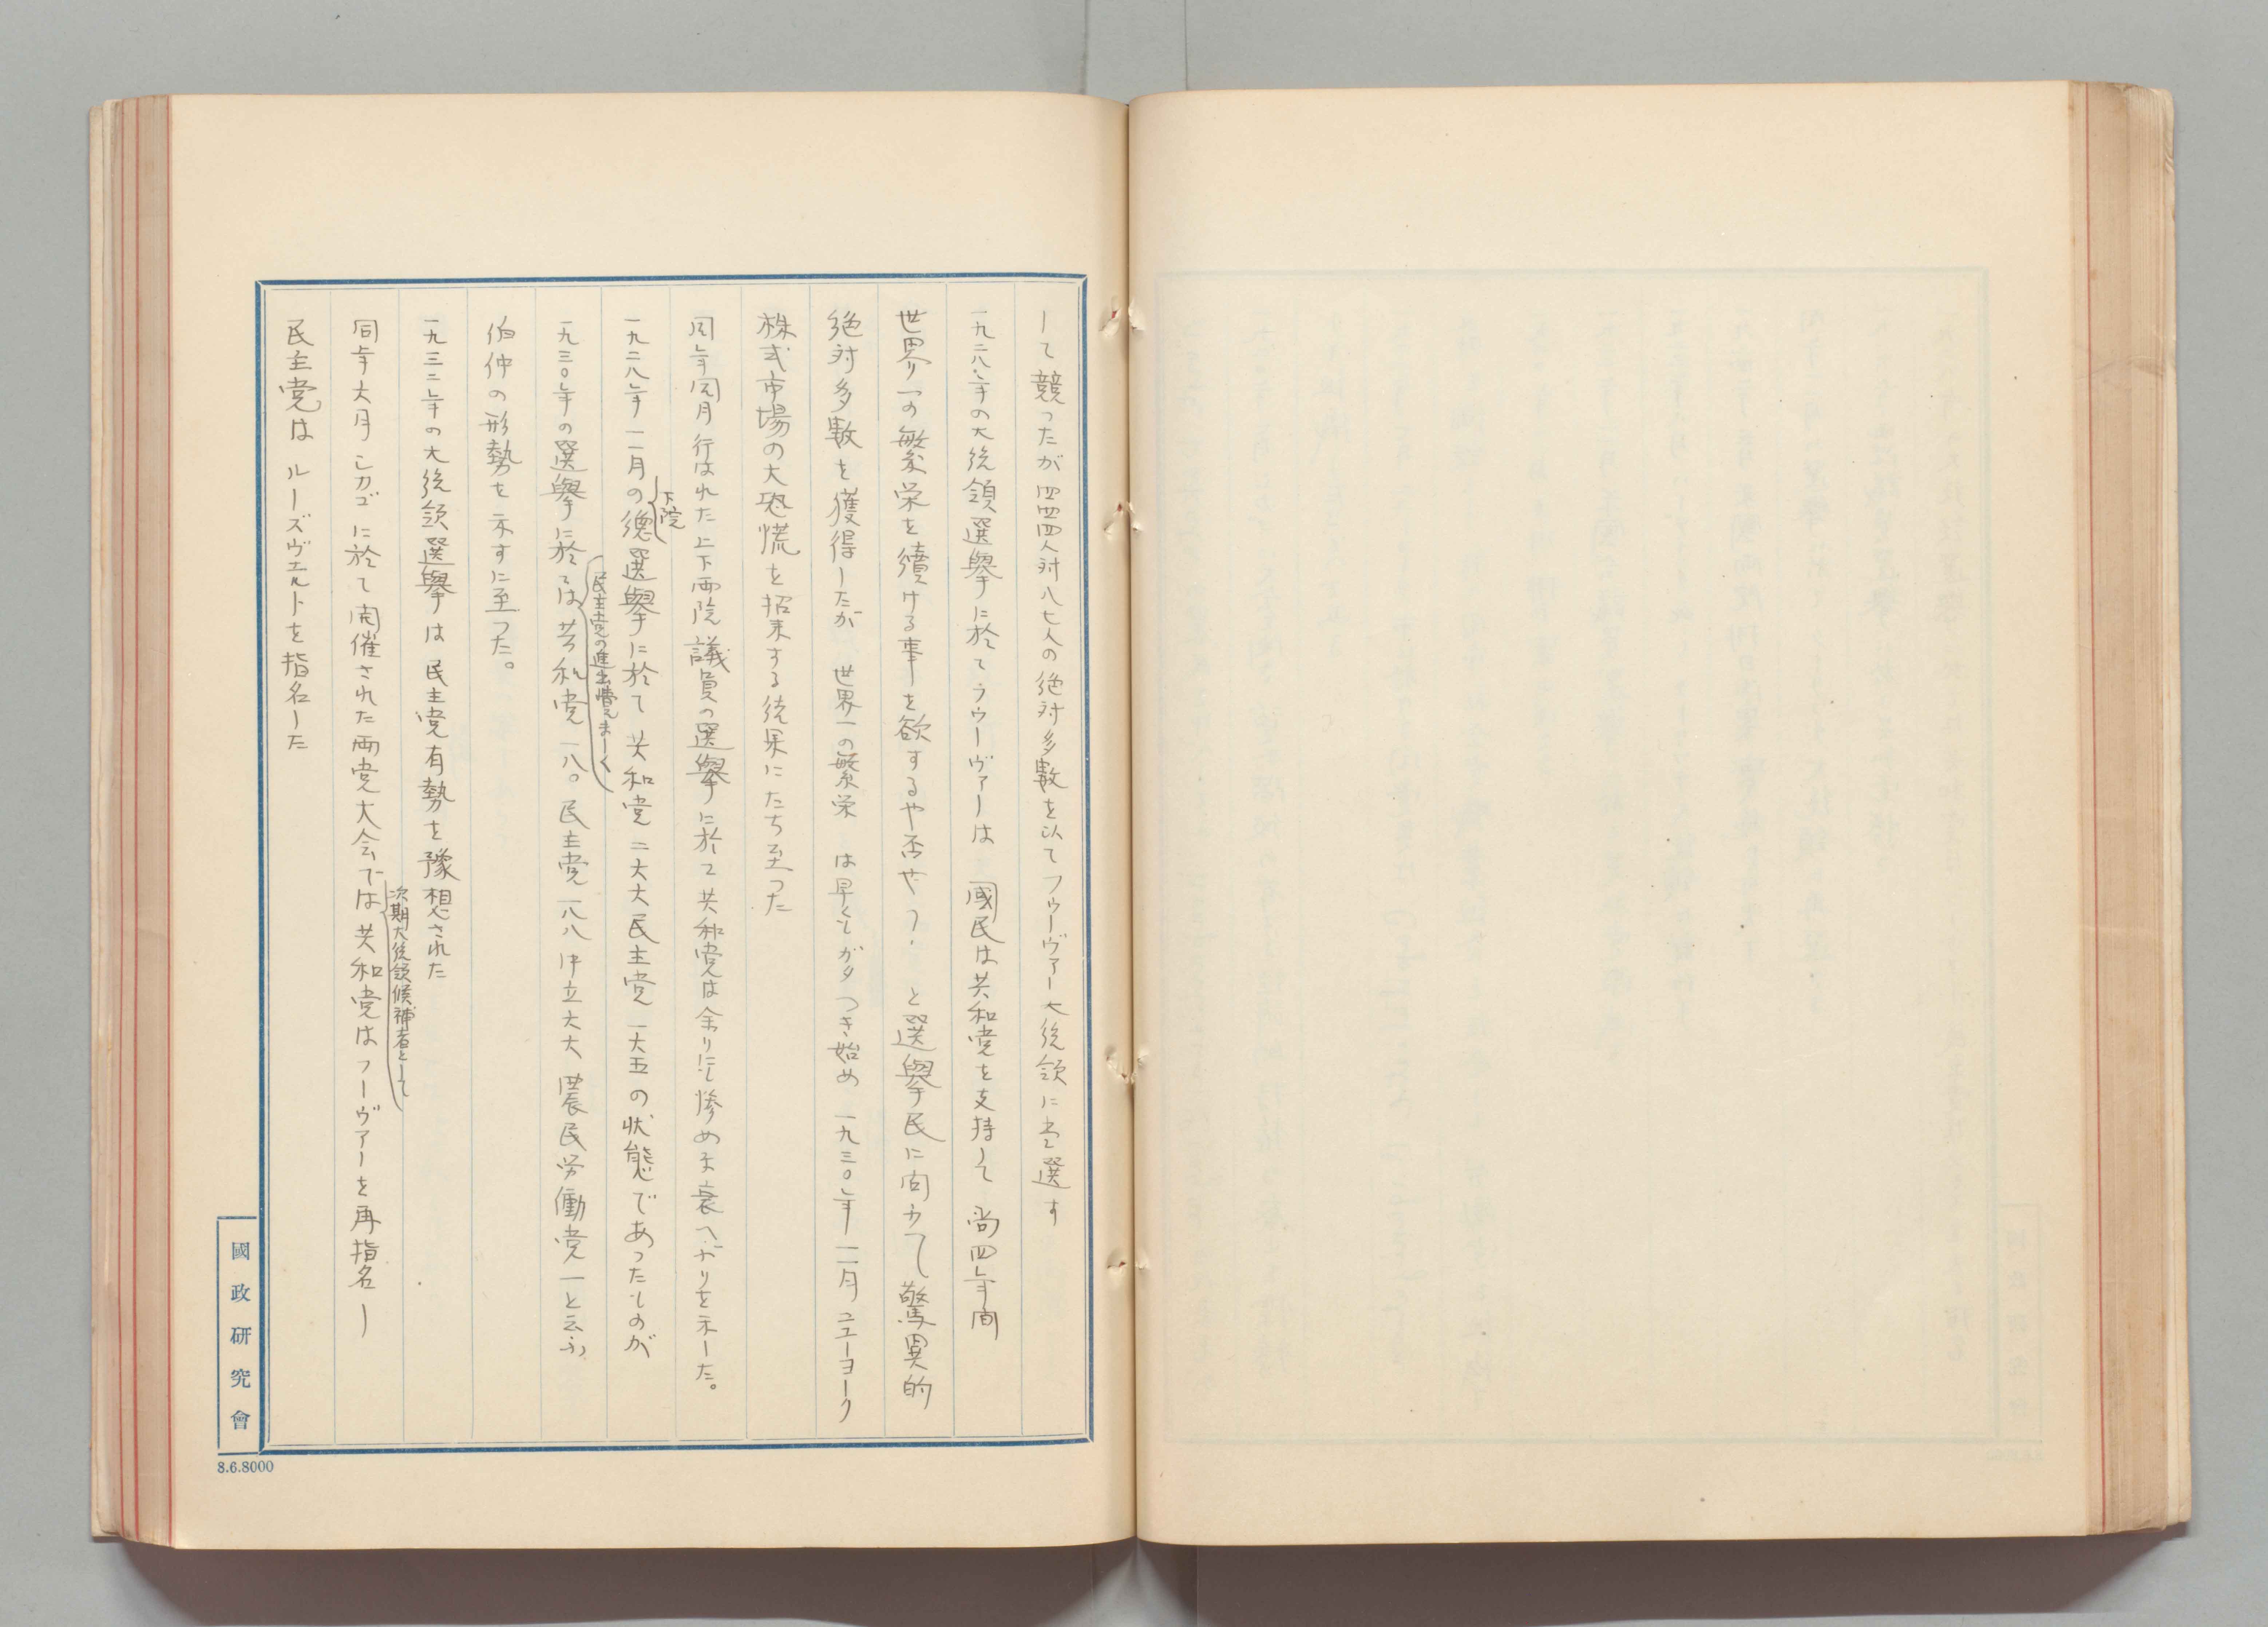 して競つたが四四四人対八七人の絶対多数を以てフウーヴァー大統領に当選す
一九二八年の大統領選挙に於てフウーヴァーは 國民は共和党を支持して 尚四年間
世界一の繁栄を續ける事を欲するや否や と選挙民に向かつて驚異的
絶対多数を獲得したが 世界一の繁栄 は早くもガタつき始め 一九三〇年一一月ニューヨーク
株式市場の大恐慌を招来する結果にたち至つた
同年同月行はれた上下両院議員の選挙に於て共和党は余りにも惨めな衰へ方を示した。
下院
一九二八年一一月の總選挙に於て 共和党 二六六 民主党 一六五の状態であつたものが
民主党の進出
一九三〇年の選挙に於ては共和党 二一八。民主党 二一八 中立 農民労働党一と云ふ
伯仲の形勢を示すに至つた。
一九三二年の大統領選挙は 民主党有勢を豫想された
次期大統領候補者として
同年六月シカゴに於て開催された両党大会では共和党はフーヴァーを再指名し
民主党は ルーズヴェルトを指名した
國政研究會
8.6.8000